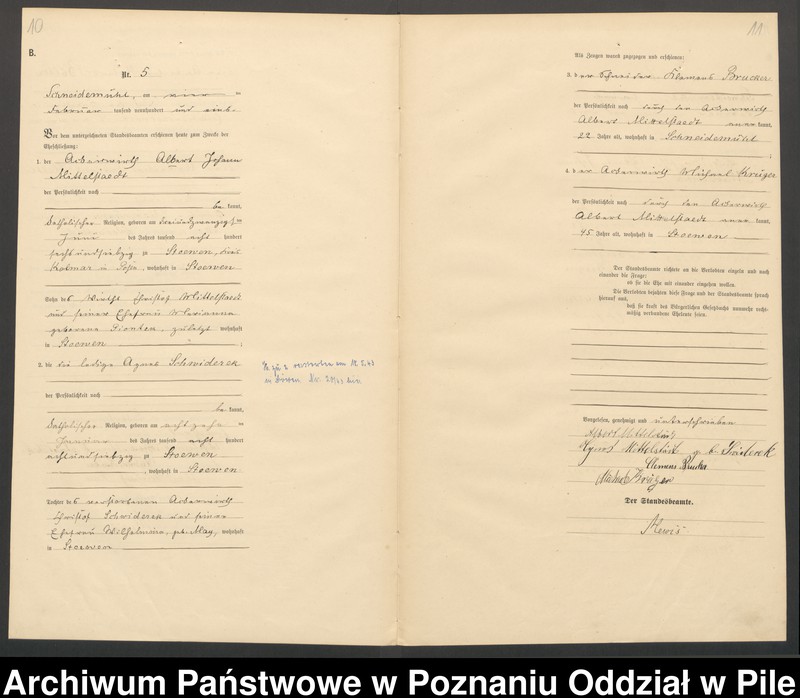 10
B.
Nr. 5
Schneidemühl, am vier ten
Februar tausend neunhundert und eins.
Vor dem unterzeichneten Standesbeamten erschienen heute zum Zwecke der
Eheschließung:
1. der Ackerwirth Albert Johann
Mittelstaedt
der Persönlichkeit nach
be kannt,
katholischer Religion, geboren am dreiundzwanzigsten
Juni des Jahres tausend acht hundert
sechsundsiebzig zu Stoewen, Kreis
Kolmar in Posen, wohnhaft in Stoewen
Sohn des Wirths Christof Mittelstaedt
und seiner Ehefrau Marianna
geborene Piontek, zuletzt wohnhaft
in Stoewen ;
2. die ledige Agnes Schwiderek
der Persönlichkeit nach
be kannt,
katholischer Religion, geboren am achtzehn ten
Januar des Jahres tausend acht hundert
achtundsiebzig zu Stoewen
, wohnhaft in Stoewen
Tochter des verstorbenen Ackerwirth
Christof Schwiderek und seiner
Ehefrau Wilhelmine, geb. May, wohnhaft
in Stoewen
zu 2 verstorben am
in Stöwen Nr.
11
Als Zeugen waren zugezogen und erschienen:
3. der Schneider Klemens Brucker
der Persönlichkeit nach durch den Ackerwirth
Albert Mittelstaedt anerkannt,
22 Jahre alt, wohnhaft in Schneidemühl
;
4. der Ackerwirth Michael Krüger
der Persönlichkeit nach durch den Ackerwirth
Albert Mittelstaedt anerkannt,
45 Jahre alt, wohnhaft in Stoewen
Der Standesbeamte richtete an die Verlobten einzeln und nach
einander die Frage:
ob sie die Ehe mit einander eingehen wollen.
Die Verlobten bejahten diese Frage und der Standesbeamte sprach
hierauf aus,
daß sie kraft des Bürgerlichen Gesetzbuchs nunmehr recht-
mäßig verbundene Eheleute seien.
Vorgelesen, genehmigt und unterschrieben
Albert Mittelstädt
Agnes Mittelstädt geb.
Clemens Brucker
Michael Krüger
Der Standesbeamte.
Archiwum Państwowe w Poznaniu Oddział w Pile